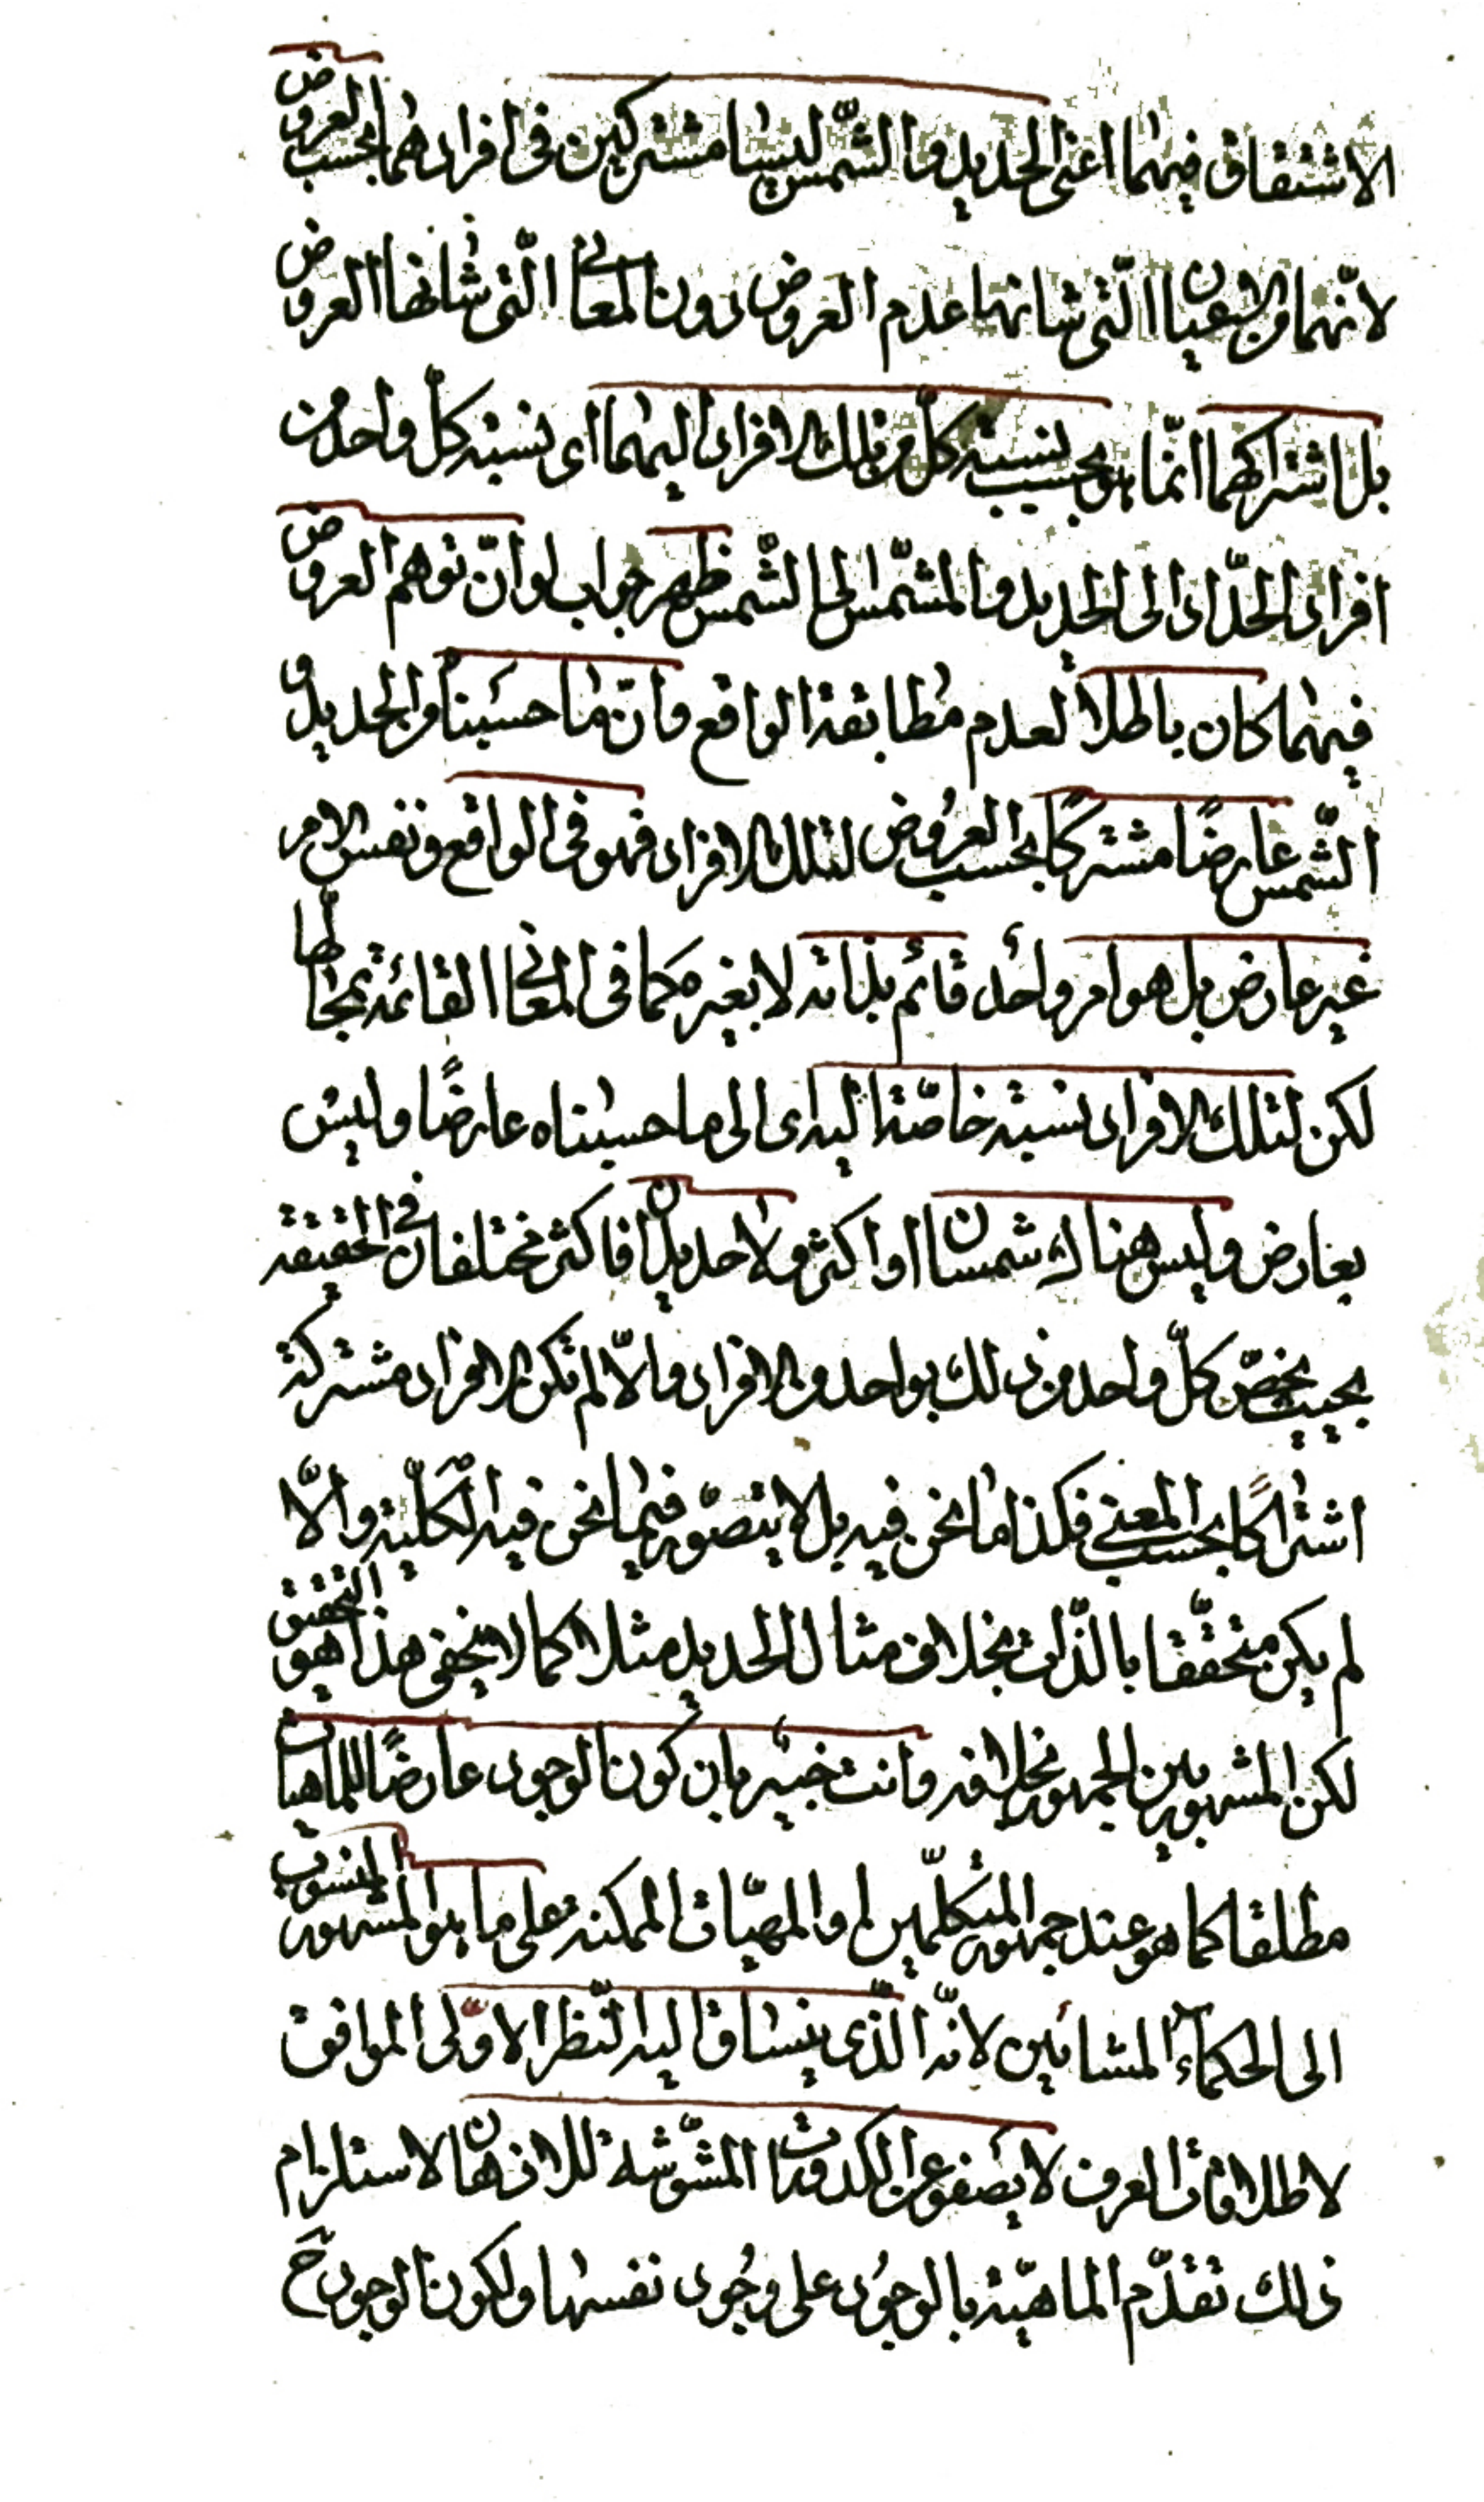 الاشتقاق فيهما اعنى الحديد والشّمس ليسا مشتركين فى افرادهما بحسب العروض
لانّهما من الاعيان الّتى شانهما عدم العروض دون المعانى الّتى شانها العروض
بل اشتراكهما انّما هو بحسب نسبة كلّ من تلك الافراد اليهما اى نسبة كلّ واحد من
افراد الحدّاد الى الحديد والمشمّس الى الشّمس ظهر جواب لو انّ توهم العروض
فيهما كان باطلاً لعدم مطابقة الواقع وانّ ما حسبناه من الحديد و
الشّمس عارضًا مشتركًا بحسب العروض لتلك الافراد فهو فى الواقع ونفس الامر
غير عارض بل هو امر واحد قائم بذاته لا بغيره كما فى المعانى القائمة بمحالّها
لكن لتلك الافراد نسبة خاصّة اليه اى الى ما حسبناه عارضًا وليس
بعارض وليس هناك شمسان او اكثر ولا حديدان فاكثر مختلفان فى الحقيقة
بحيث يخصّ كلّ واحد من ذلك بواحد من الافراد والّا لم تكن الافراد مشتركة
اشتراكًا بحسب المعنى فكذا ما نحن فيه بل لا يتصوّر فيما نحن فيه الكلّية والّا
لم يكن متحقّقا بالذّات بخلاف مثال الحديد مثلا كما لا يخفى هذا هو التحقيق
لكن المشهور بين الجمهور خلافه وانت خبير بان كون الوجود عارضًا للماهيات
مطلقا كما هو عند جمهور المتكلّمين او المهيّات الممكنة على ما هو المشهور المنسوب
الى الحكماء المشائين لانّه الّذى ينساق اليه النّظر الاوّلى الموافق
لاطلاقات العرف لا يصفو عن الكدورات المشّوشة للاذهان لاستلزام
ذلك تقدّم الماهيّة بالوجود على وجود نفسها ولكون الوجود ح